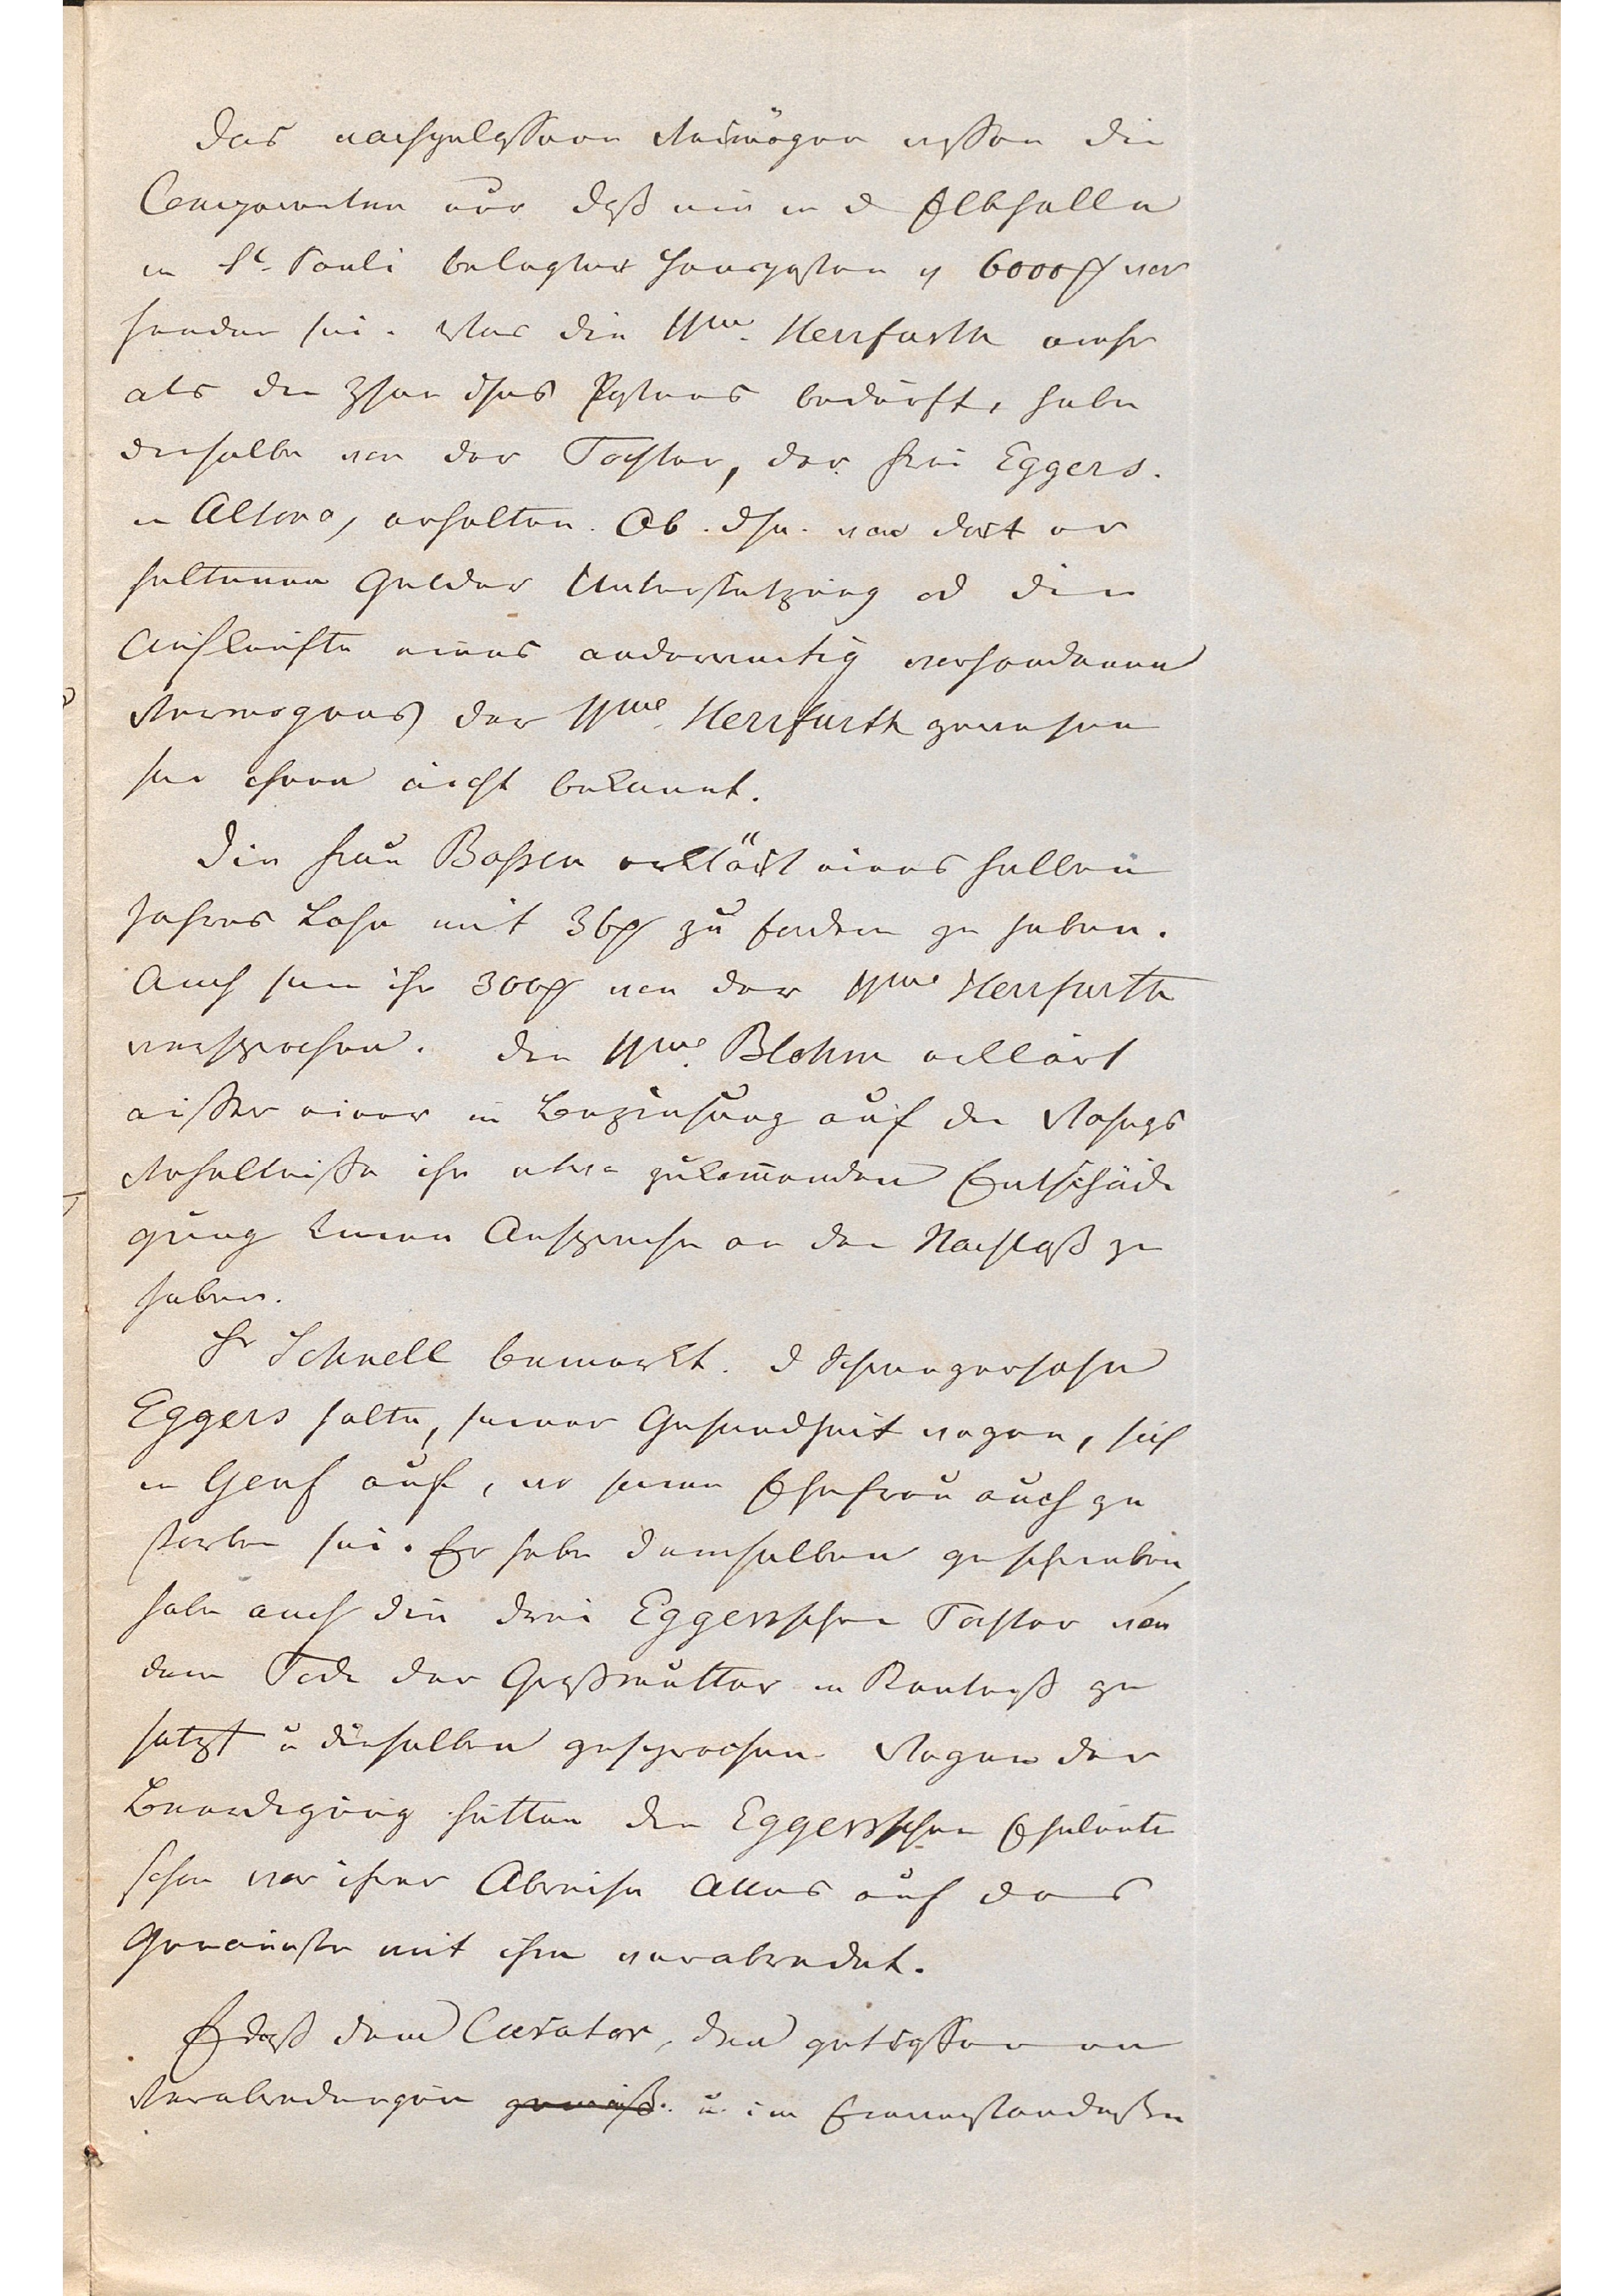 Das nachgelassene Vermögen wissen die
Comparenten nur daß ein in d Elbhalle
in St. Pauli belegter Hausposten v 6000 vor
handen sei. Was die Wwe. Herrfurth mehr
als die Zinsen dses Postens bedurft, habe
dieselbe von der Tochter, der Frau Eggers.
in Altona, erhalten. Ob dse. von dort er
haltenen Gelder Unterstützung od die
Aufkünfte eines anderweitig vorhandenen
Vermögens der Wwe. Herrfurth gewesen
sei ihnen nicht bekannt.
Die Frau Bossen erklärt eines halben
Jahres Lohn mit 36 zu fordern zu haben.
Auch seien ihr 300 von der Wwe Herrfurth
versprochen. Die Wwe. Blohm erklärt
außer einer in Beziehung auf die Wohngs
Verhältnisse ihr etwa zukommenden Entschädi
gung keinen Anspruch an den Nachlaß zu
haben.
Hr Schnell bemerkt. d Schwiegersohn
Eggers halte, seiner Gesundheit wegen, sich
in Genf auf, wo seine Ehefrau auch ge
storben sei. Er habe demselben geschrieben,
habe auch die drei Eggersschen Töchter von
dem Tode der Großmutter in Kentniß ge
setzt u dieselben gesprochen. Wegen der
Beerdigung hätten die Eggersschen Eheleute
schon vor ihrer Abreise Alles auf das
Genaueste mit ihm verabredet.
daß dem Curator, den getroffenen
Verabredungen gemäß u. im Einverständniße